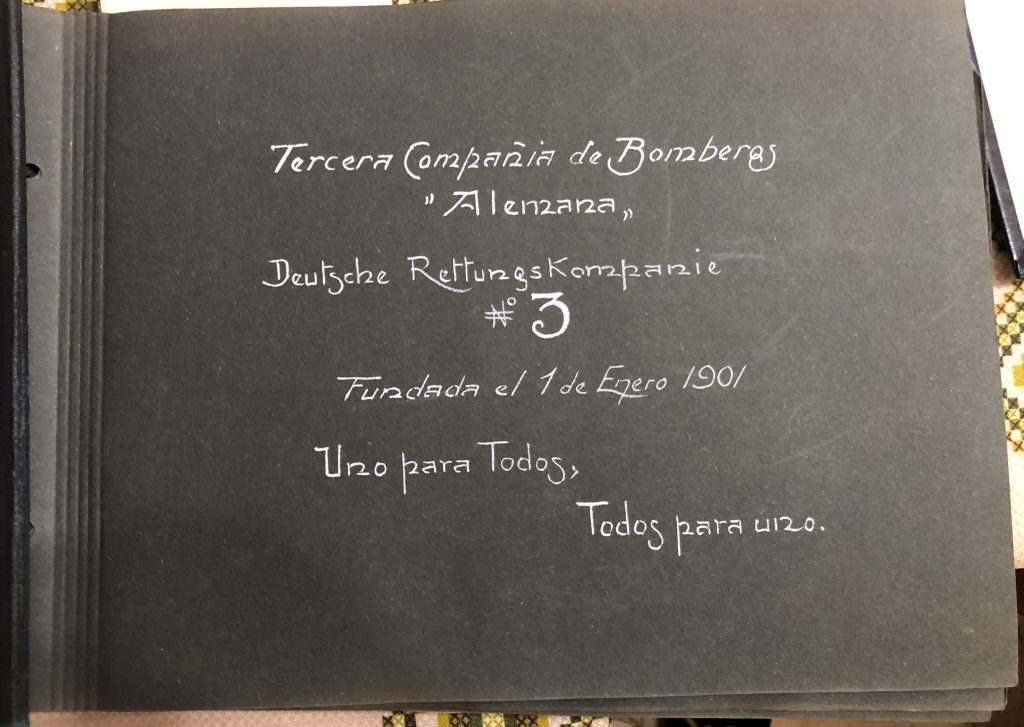 Tercera Compañia de Bomberos
"Alemana„
Deutsche Rettungskompanie
N° 3
Fundada el 1 de Enero 1901
Uno para Todos,
Todos para uno.